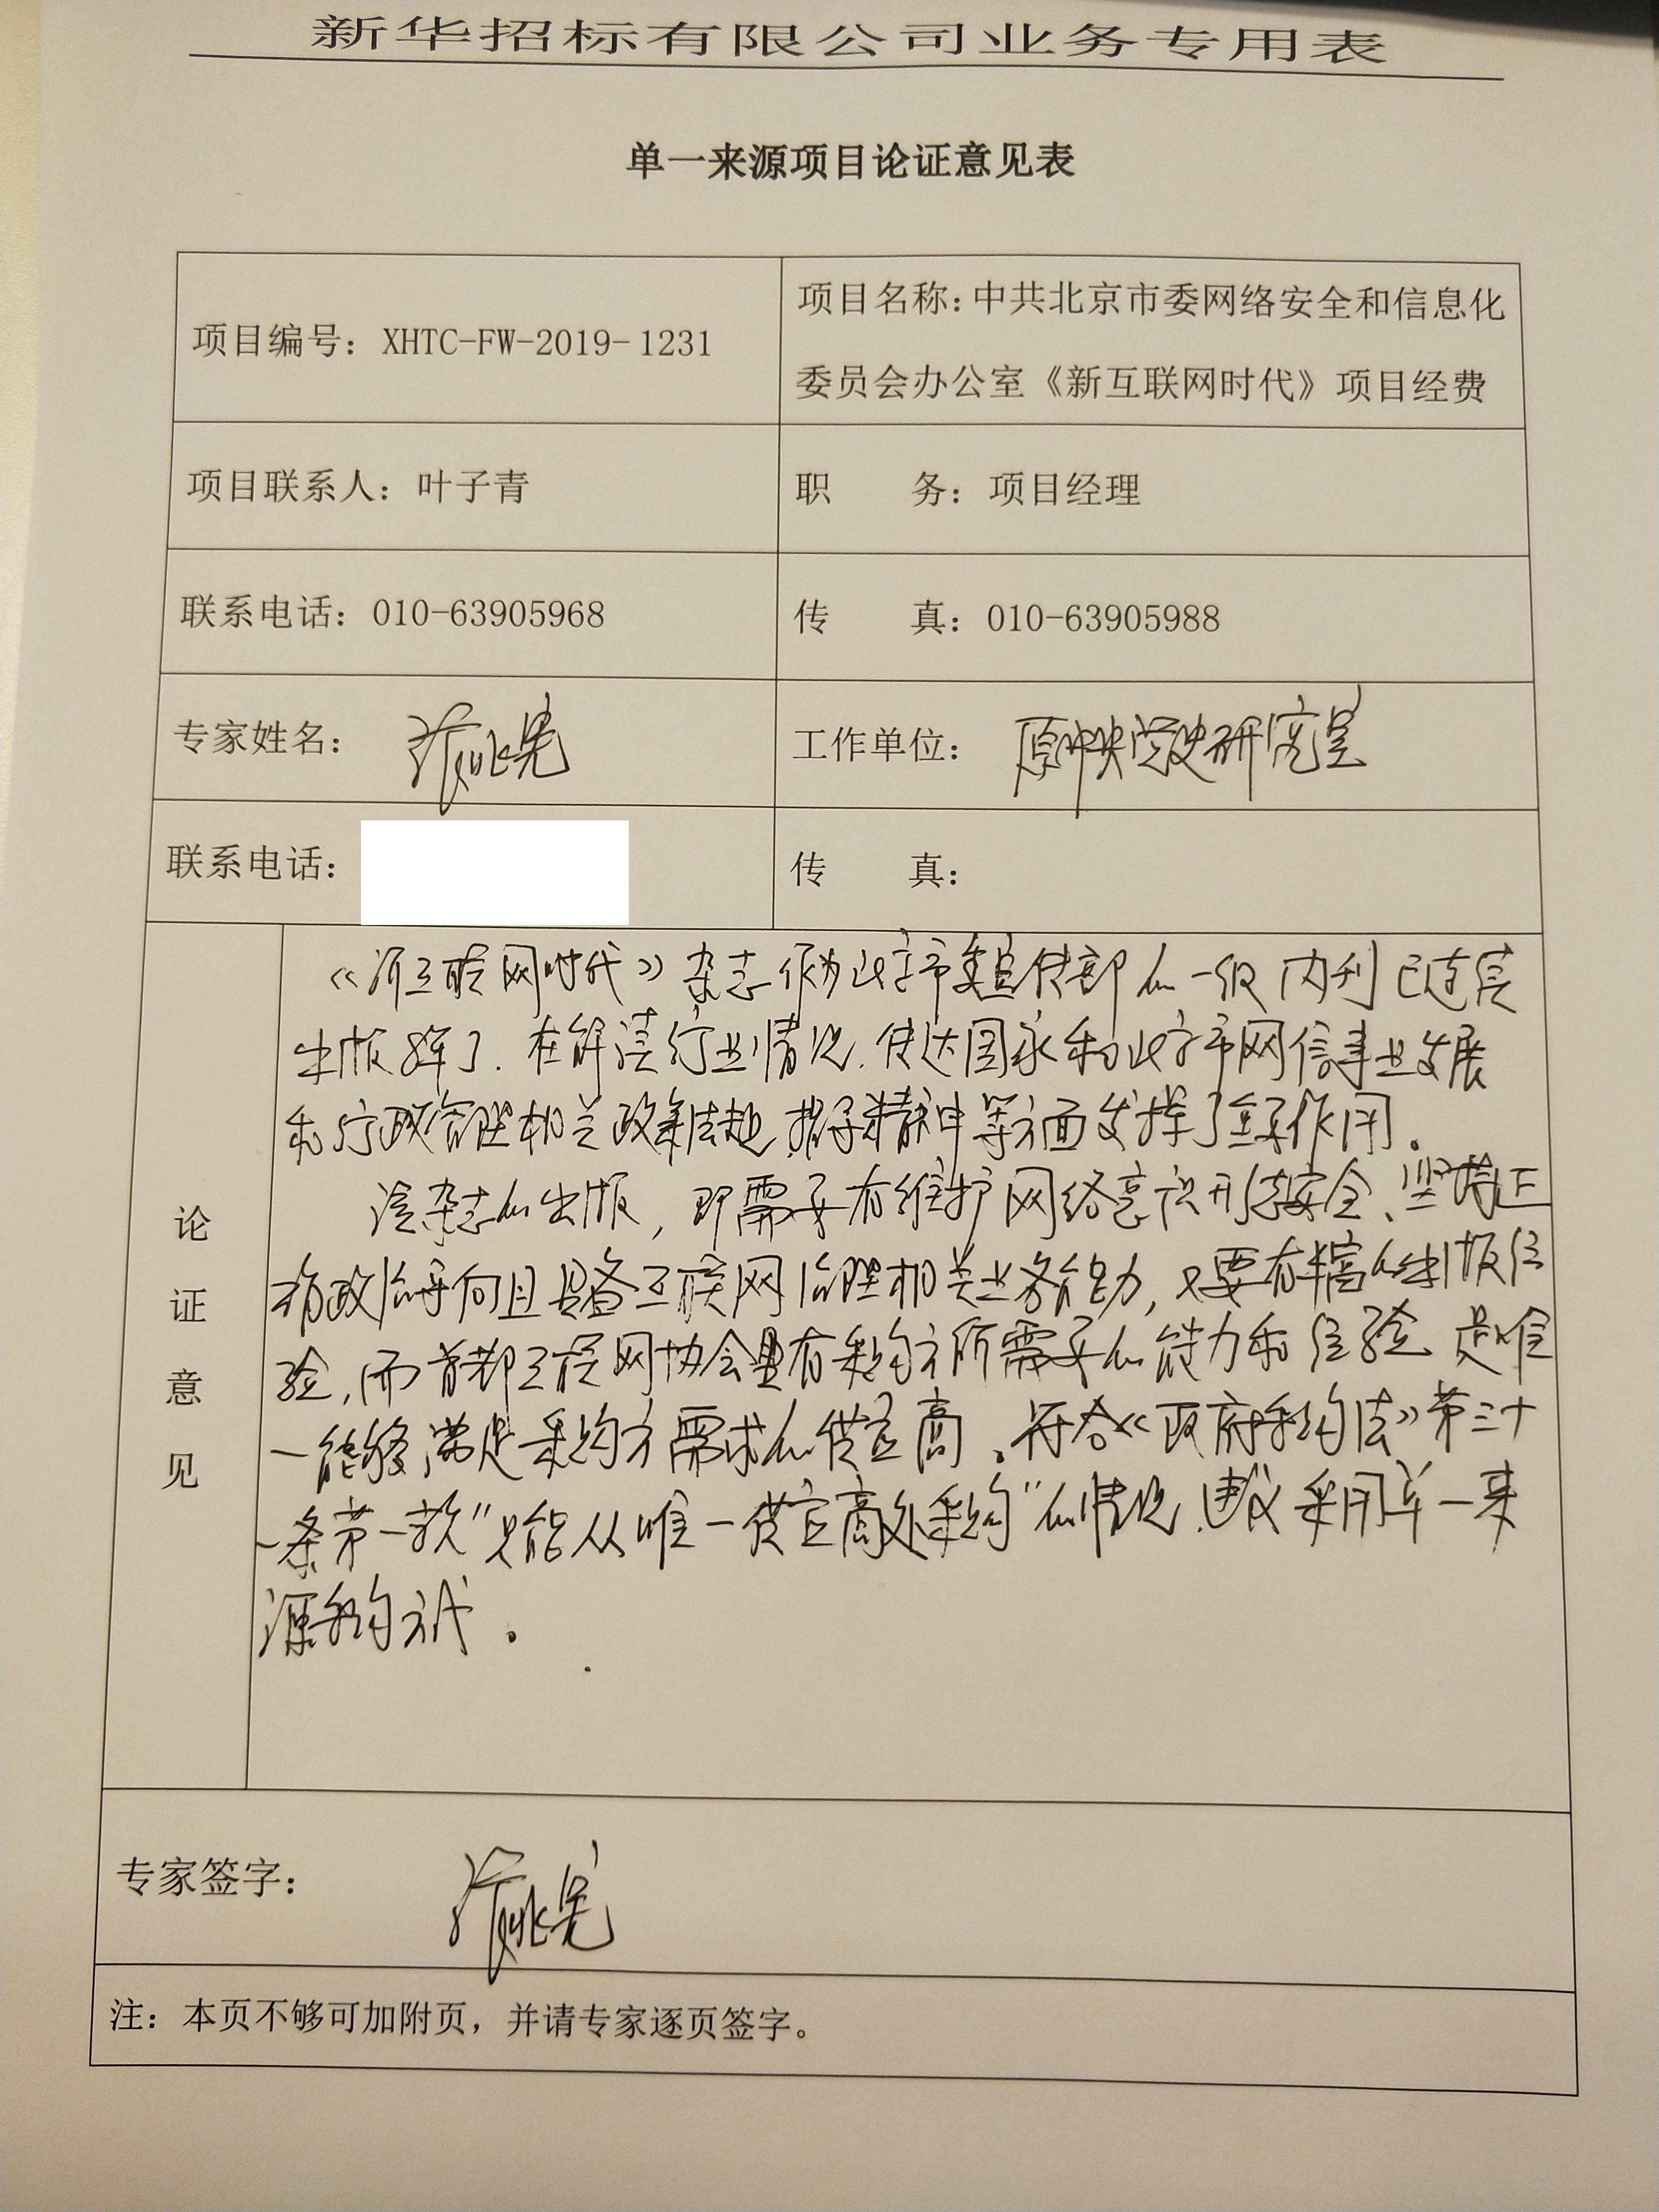 新华招标有限公司业务专用表
单一来源项目论证意见表
项目编号：XHTC-FW-2019-1231
项目名称：中共北京市委网络安全和信息化
委员会办公室《新互联网时代》项目经费
项目联系人：叶子青
职 务：项目经理
联系电话：010-63905968
传 真：010-63905988
专家姓名：
工作单位：原中央党史研究室
联系电话：
传 真：
论证意见
《新互联网时代》杂志作为北京市委宣传部的一级内刊已连续
出版 在解读行业情况、传达国家和北京市网信事业发展
和行政管理相关政策法规、指导精神等方面发挥了 作用。
该杂志的出版，即需要有维护网络意识形态安全、坚持正
确政治导向且具备互联网治理相关业务能力，又要有丰富的出版经
验，而首都互联网协会具有采购方所需要的能力和经验 是唯
一能够满足采购方需求的供应商、符合《政府采购法》第三十
一条第一款“只能从唯一供应商处采购”的情况，建议采用单一来
源采购方式。
专家签字：
注：本页不够可加附页，并请专家逐页签字。